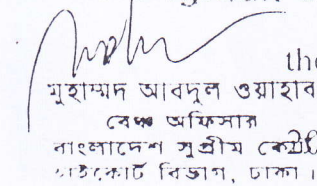 the
মুহাম্মদ আবদুল ওয়াহাব
বেঞ্চ অফিসার
বাংলাদেশ সুপ্রীম কোর্ট
হাইকোর্ট বিভাগ, ঢাকা।